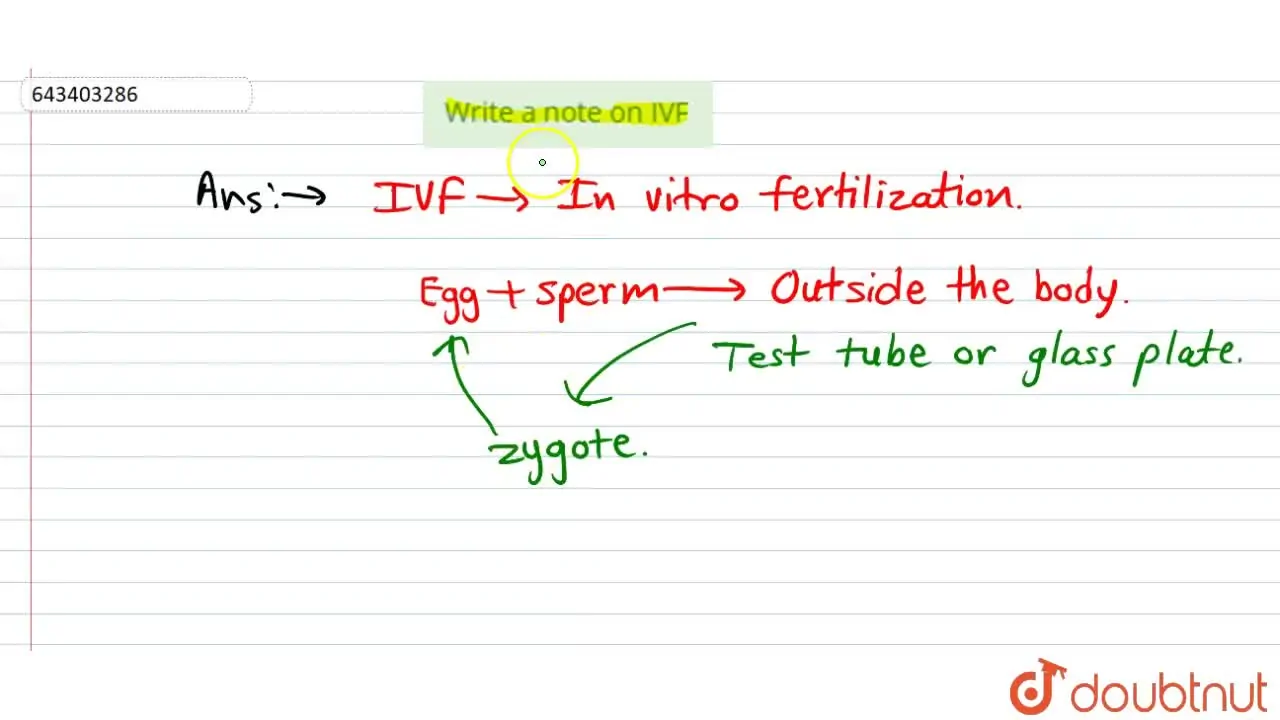 643403286
Write a note on IVF
Ans:→ IVF → In vitro fertilization.
Egg + sperm → Outside the body.
Test tube or glass plate.
zygote.
doubtnut